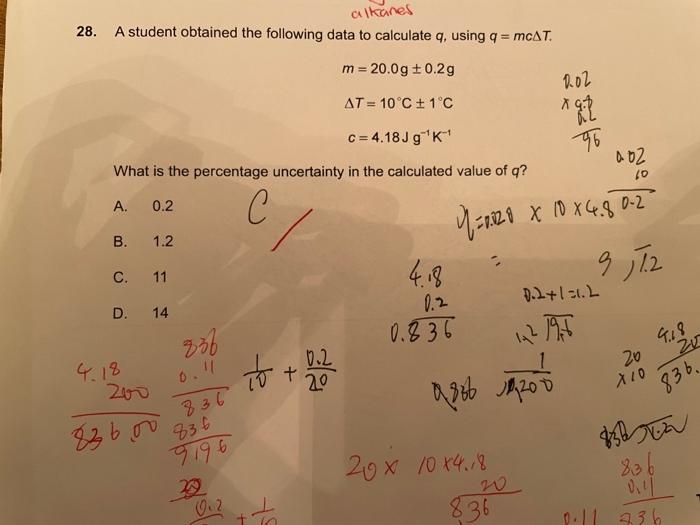 alkanes
28. A student obtained the following data to calculate q, using q = mcΔT.
m = 20.0 g ± 0.2 g
ΔT = 10 °C ± 1 °C
c = 4.18 J g⁻¹ K⁻¹
What is the percentage uncertainty in the calculated value of q?
A. 0.2
B. 1.2
C. 11
D. 14
C
0.02
96
0.02
10
0.2
× 10 × 4.8
4.18
0.2
0.836
0.2+1=1.2
1/10 + 0.2/20
4.18
200
836.00
836
0.11
836
836
9196
20
×10
4.18
20
836.
20 × 10 × 4.18
20
836
836
0.11
836
0.2
0.11